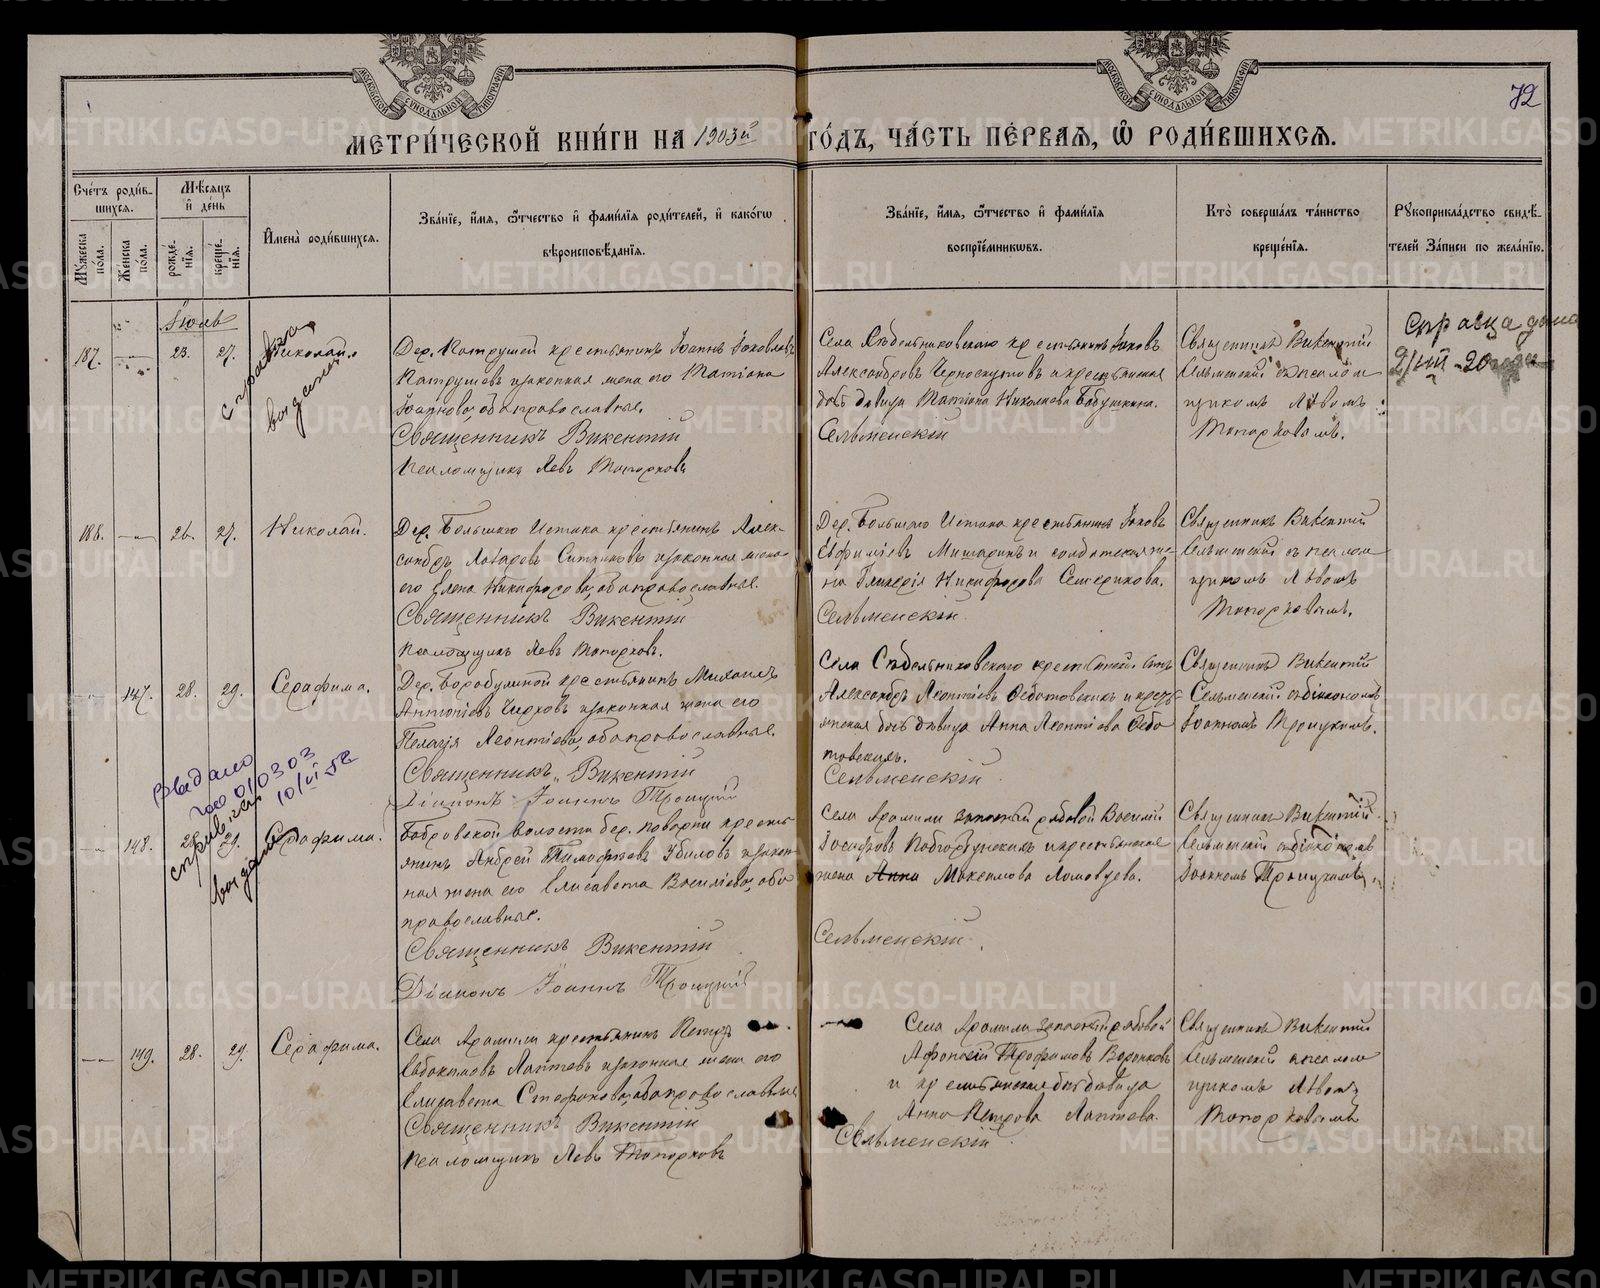 72
МЕТРИ́ЧЕСКОЙ КНИ́ГИ НА 1903й ГО́ДЪ, ЧА́СТЬ ПЕ́РВАЯ, Ѿ РОДИ́ВШИХСЯ.
Сче́тъ роди́в-
шихся.
Мѣ́сяцъ
и҆ де́нь
Мꙋ́жеска по́ла.
Же́нска по́ла.
рожде́-
нїя.
креще́-
нїя.
И҆мена̀ роди́вшихся.
Зва́нїе, и҆́мя, ѻ҆́тчество и҆ фами́лїя роди́телей, и҆ како́гѡ
вѣроисповѣ́данїя.
Зва́нїе, и҆́мя, ѻ҆́тчество и҆ фами́лїя
воспрїе́мникѡвъ.
Кто̀ соверша́лъ та́инство
креще́нїя.
Рꙋкоприкла́дство свидѣ́-
телей За́писи по жела́нїю.
Іюль
187. 23. 27. Николай
справка
выдана
Дер. Патрушей крестьянинъ Іоаннъ Іаковлевъ
Патрушевъ и законная жена его Татіана
Іоаннова, оба православные.
Священникъ Викентій
Псаломщикъ Левъ Топорковъ
Села Сѣдельниковскаго крестьянинъ Іаковъ
Александровъ Черноскутовъ и крестьянская
дочь дѣвица Татіана Николаева Бабушкина.
Сельменскій
Священникъ Викентій
Сельменскій съ псалом-
щикомъ Львомъ
Топорковымъ.
Справка дана
188. 26. 27. Николай.
Дер. Большаго Истока крестьянинъ Алек-
сандръ Лазаревъ Ситниковъ и законная жена
его Елена Никифорова, оба православные.
Священникъ Викентій
Псаломщикъ Левъ Топорковъ.
Дер. Большаго Истока крестьянинъ Іаковъ
Евфиміевъ Мишаринъ и солдатская же-
на Гликерія Никифорова Семерикова.
Сельменскій
Священникъ Викентій
Сельменскій съ псалом-
щикомъ Львомъ
Топорковымъ.
147. 28. 29. Серафима.
Дер. Бородулиной крестьянинъ Михаилъ
Антоніевъ и законная жена его
Пелагія Леонтіева, оба православные.
Священникъ Викентій
Діаконъ Іоаннъ Троицкій
Села Сѣдельниковскаго крестьянскій сынъ
Александръ Леонтіевъ Федотовскихъ и кресть-
янская дочь дѣвица Анна Леонтіева Федо-
товскихъ.
Сельменскій
Священникъ Викентій
Сельменскій съ діакономъ
Іоанномъ Троицкимъ.
Выдано
010303
10/VI 52
148. 28. 29. Серафима.
справка
выдана
Бобровской волости дер. Поварни кресть-
янинъ Андрей Тимофеевъ Убиловъ и закон-
ная жена его Елисавета Васильева, оба
православные.
Священникъ Викентій
Діаконъ Іоаннъ Троицкій
Села Арамили запасный рядовой Василій
Іосифовъ и крестьянская
жена Анна Максимова Ломовцева.
Сельменскій.
Священникъ Викентій
Сельменскій съ діакономъ
Іоанномъ Троицкимъ
149. 28. 29. Серафима.
Села Арамили крестьянинъ Петръ
Евдокимовъ Лаптевъ и законная жена его
Елизавета Стефанова, оба православные
Священникъ Викентій
Псаломщикъ Левъ Топорковъ
Села Арамили запасный рядовой
Афонасій Трофимовъ Воронковъ
и крестьянская дочь дѣвица
Анна Петрова Лаптева.
Сельменскій
Священникъ Викентій
Сельменскій съ псалом-
щикомъ Львомъ
Топорковымъ
METRIKI.GASO-URAL.RU